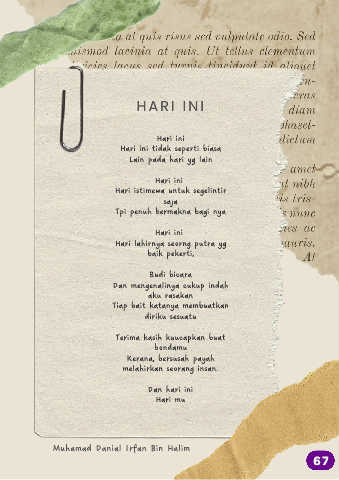 al quis risus sed vulputate odio. Sed
uismod lacinia at quis. Ut tellus elementum
lacus sed turpis tincidunt id aliquet
HARI INI
diam
dictum
Hari ini
Hari ini tidak seperti biasa
Lain pada hari yg lain
amet
nibh
Hari ini
Hari istimewa untuk segelintir
saja
Tpi penuh bermakna bagi nya
nunc
ac
mauris.
Hari ini
Hari lahirnya seorng putra yg
baik pekerti,
At
Budi bicara
Dan mengenalinya cukup indah
aku rasakan
Tiap bait katanya membuatkan
diriku sesuatu
Terima kasih kuucapkan buat
bondamu
Kerana, bersusah payah
melahirkan seorang insan.
Dan hari ini
Hari mu
Muhamad Danial Irfan Bin Halim
67